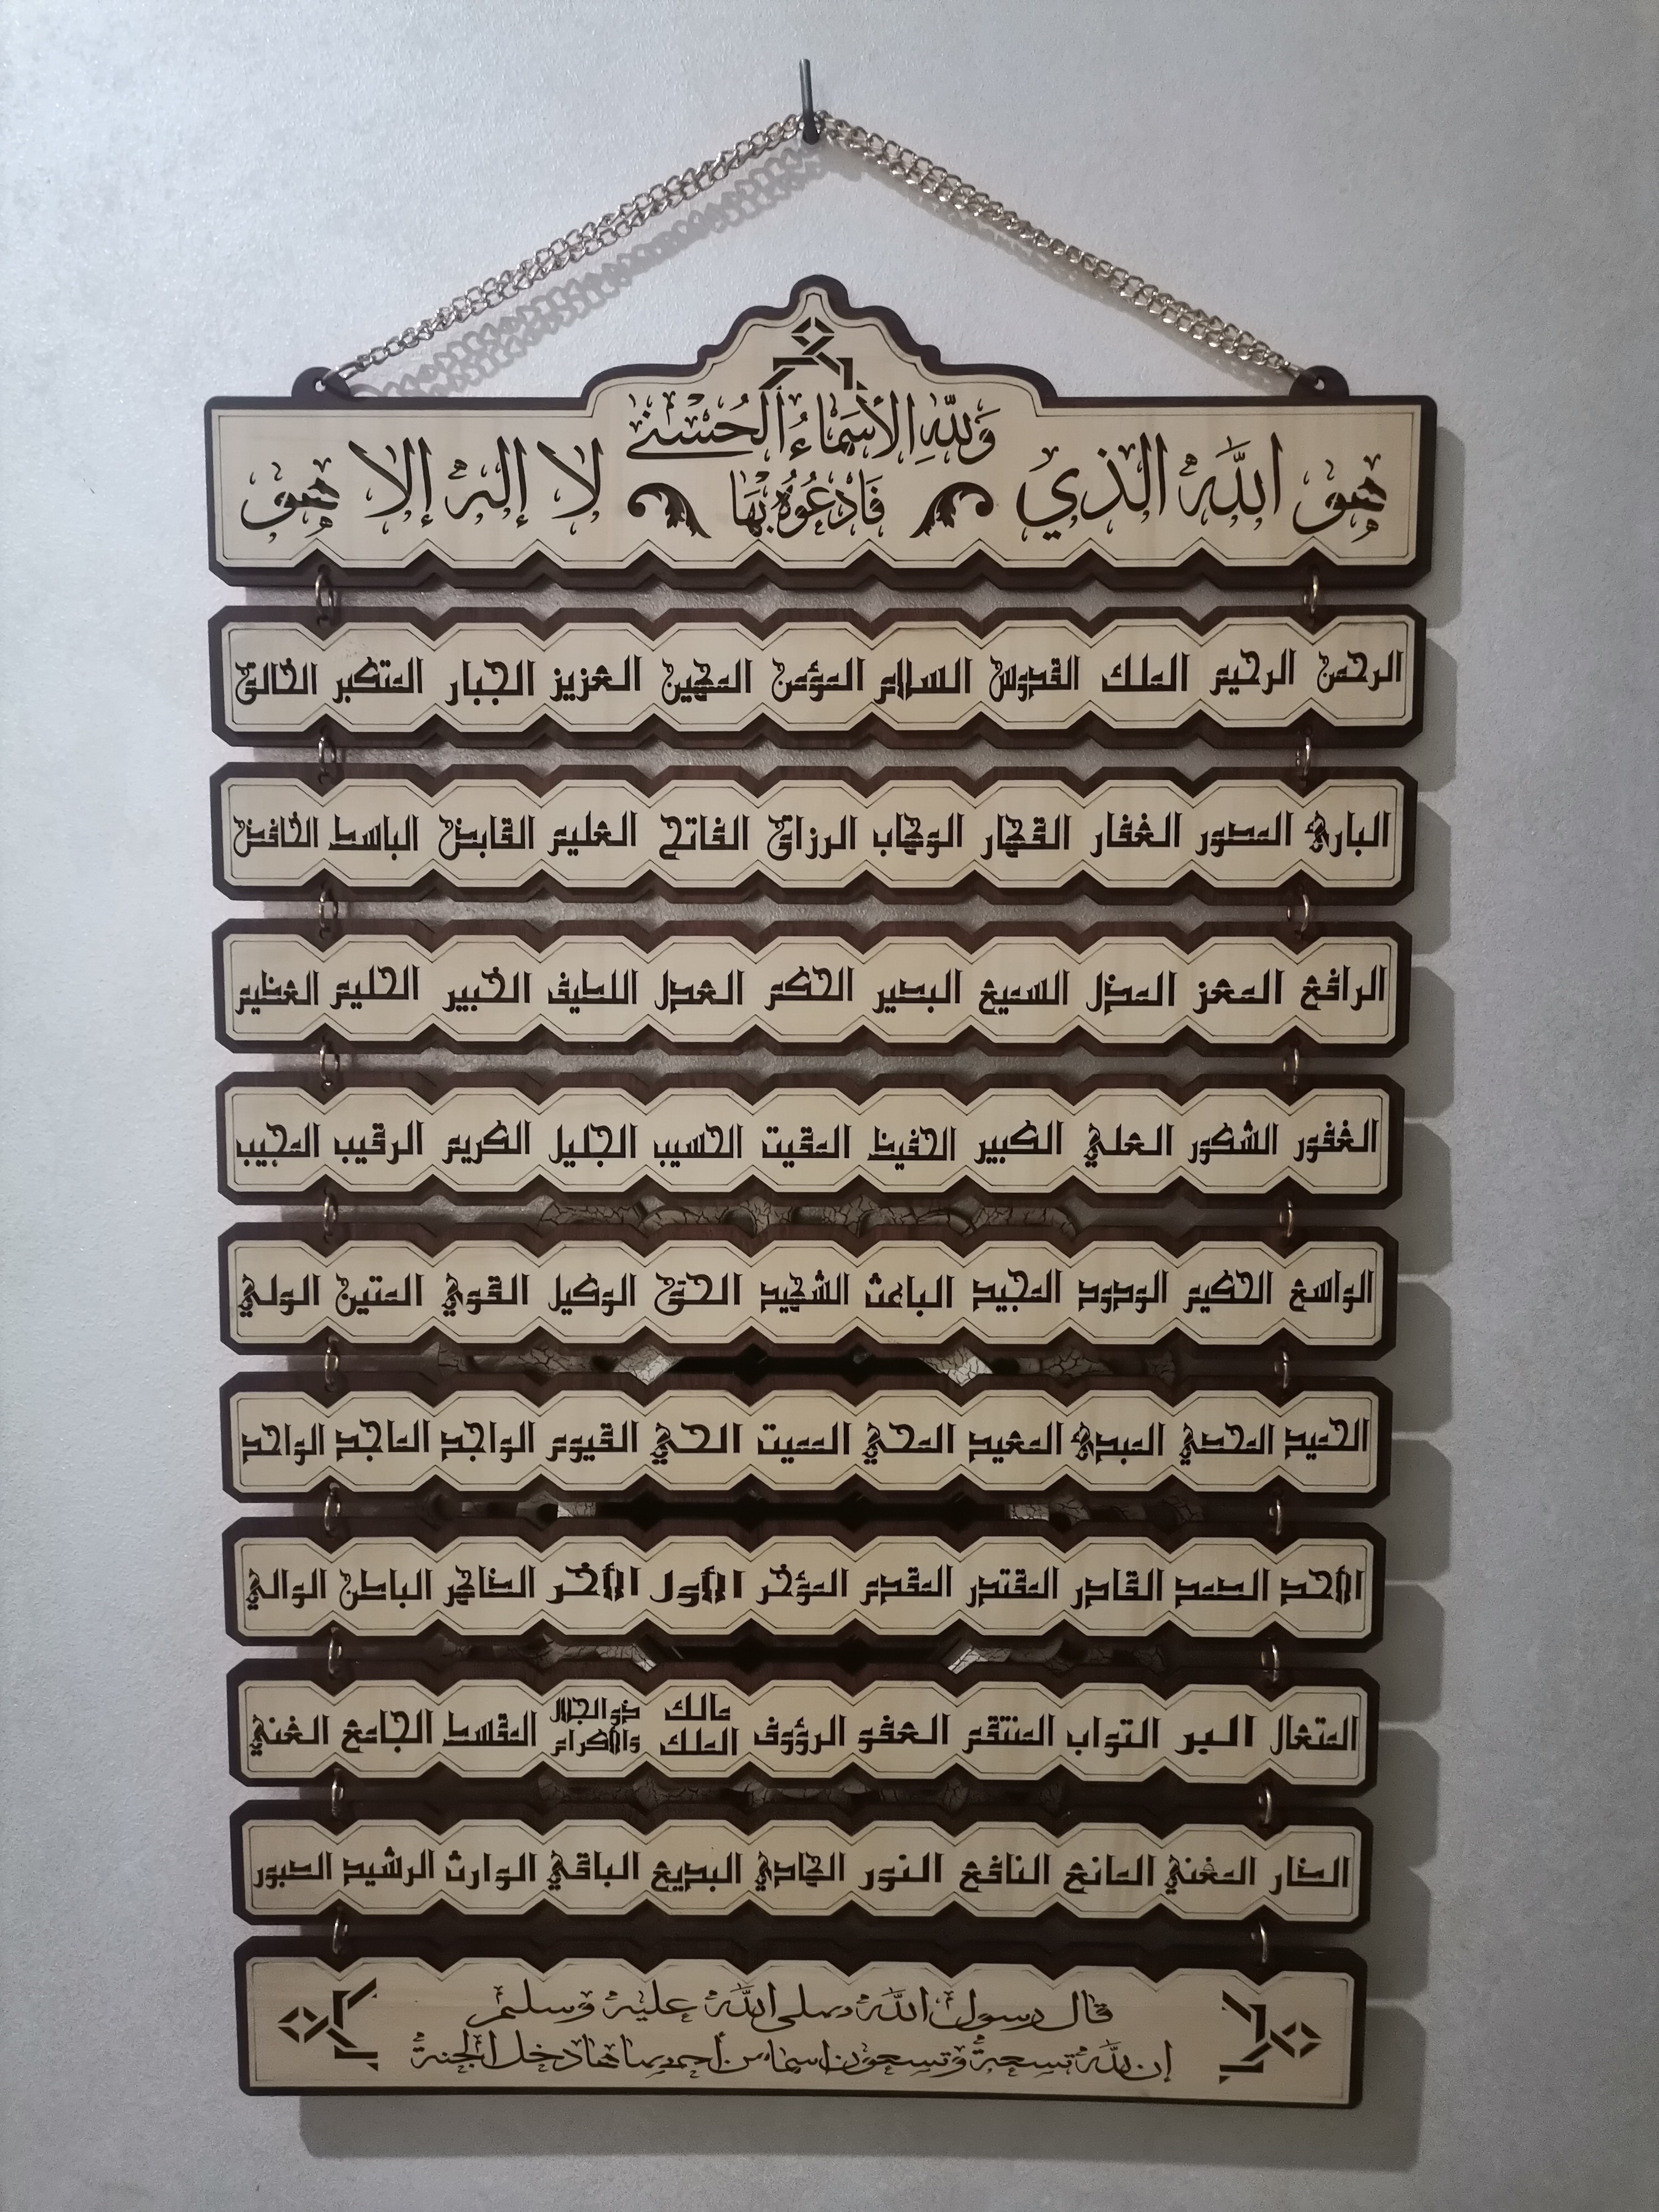 وَلِلَّهِ الْأَسْمَاءُ الْحُسْنَى
هو الله الذي فَادْعُوهُ بِهَا لا إله إلا هو
الرحمن الرحيم الملك القدوس السلام المؤمن المهيمن العزيز الجبار المتكبر الخالق
البارئ المصور الغفار القهار الوهاب الرزاق الفاتح العليم القابض الباسط الخافض
الرافع المعز المذل السميع البصير الحكم العدل اللطيف الخبير الحليم العظيم
الغفور الشكور العلي الكبير الحفيظ المقيت الحسيب الجليل الكريم الرقيب المجيب
الواسع الحكيم الودود المجيد الباعث الشهيد الحق الوكيل القوي المتين الولي
الحميد المحصي المبدئ المعيد المحي المميت الحي القيوم الواجد الماجد الواحد
الأحد الصمد القادر المقتدر المقدم المؤخر الأول الأخر الظاهر الباطن الوالي
المتعال البر التواب المنتقم العفو الرؤوف مالك الملك ذو الجلال والإكرام المقسط الجامع الغني
المغني المانع الضار النافع النور الهادي البديع الباقي الوارث الرشيد الصبور
قال رسول الله صلى الله عليه وسلم
إن لله تسعة وتسعون اسماء من أحصاها دخل الجنة